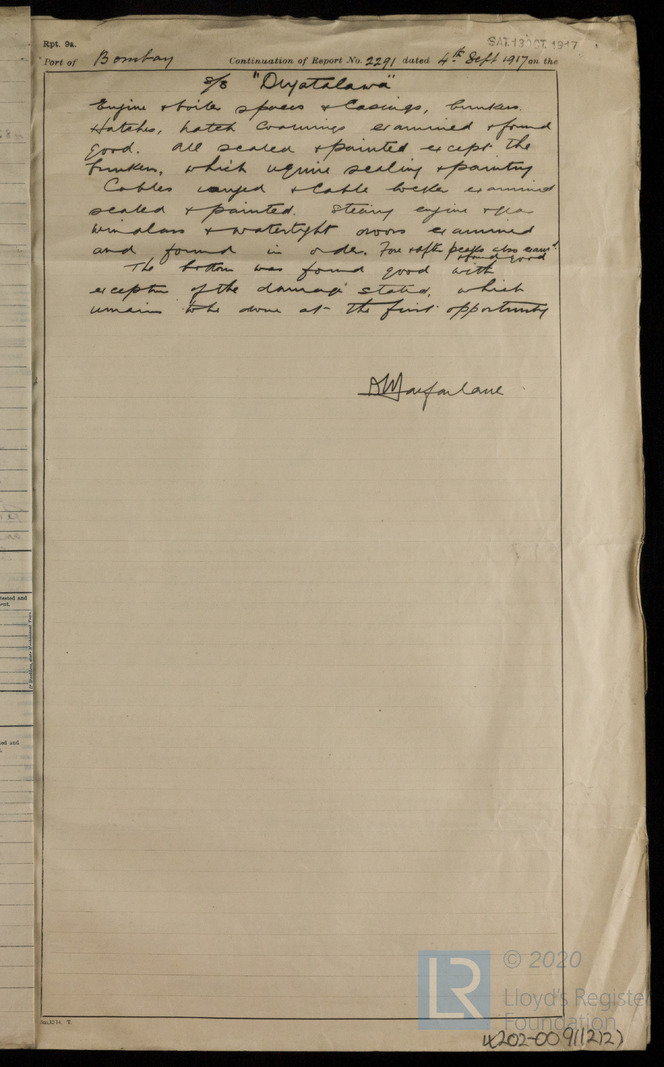 Rpt. 9a.
SAT. 13 OCT. 1917
Port of Bombay Continuation of Report No. 2291 dated 4th Sept 1917 on the
S/S "Diyatalawa"
Engine & boiler spaces & Casings, bunkers.
Hatches, hatch Coamings examined & found
good. All scaled & painted except the
bunkers, which require scaling & painting
Cables ranged & Cable locker examined
scaled & painted. Steering engine & gear
windlass & watertight doors examined
and found in order. Fore & after peaks also examd
& found good
The bottom was found good with
exception of the damage stated, which
remains to be done at the first opportunity
A Macfarlane
© 2020
Lloyd's Register
Foundation